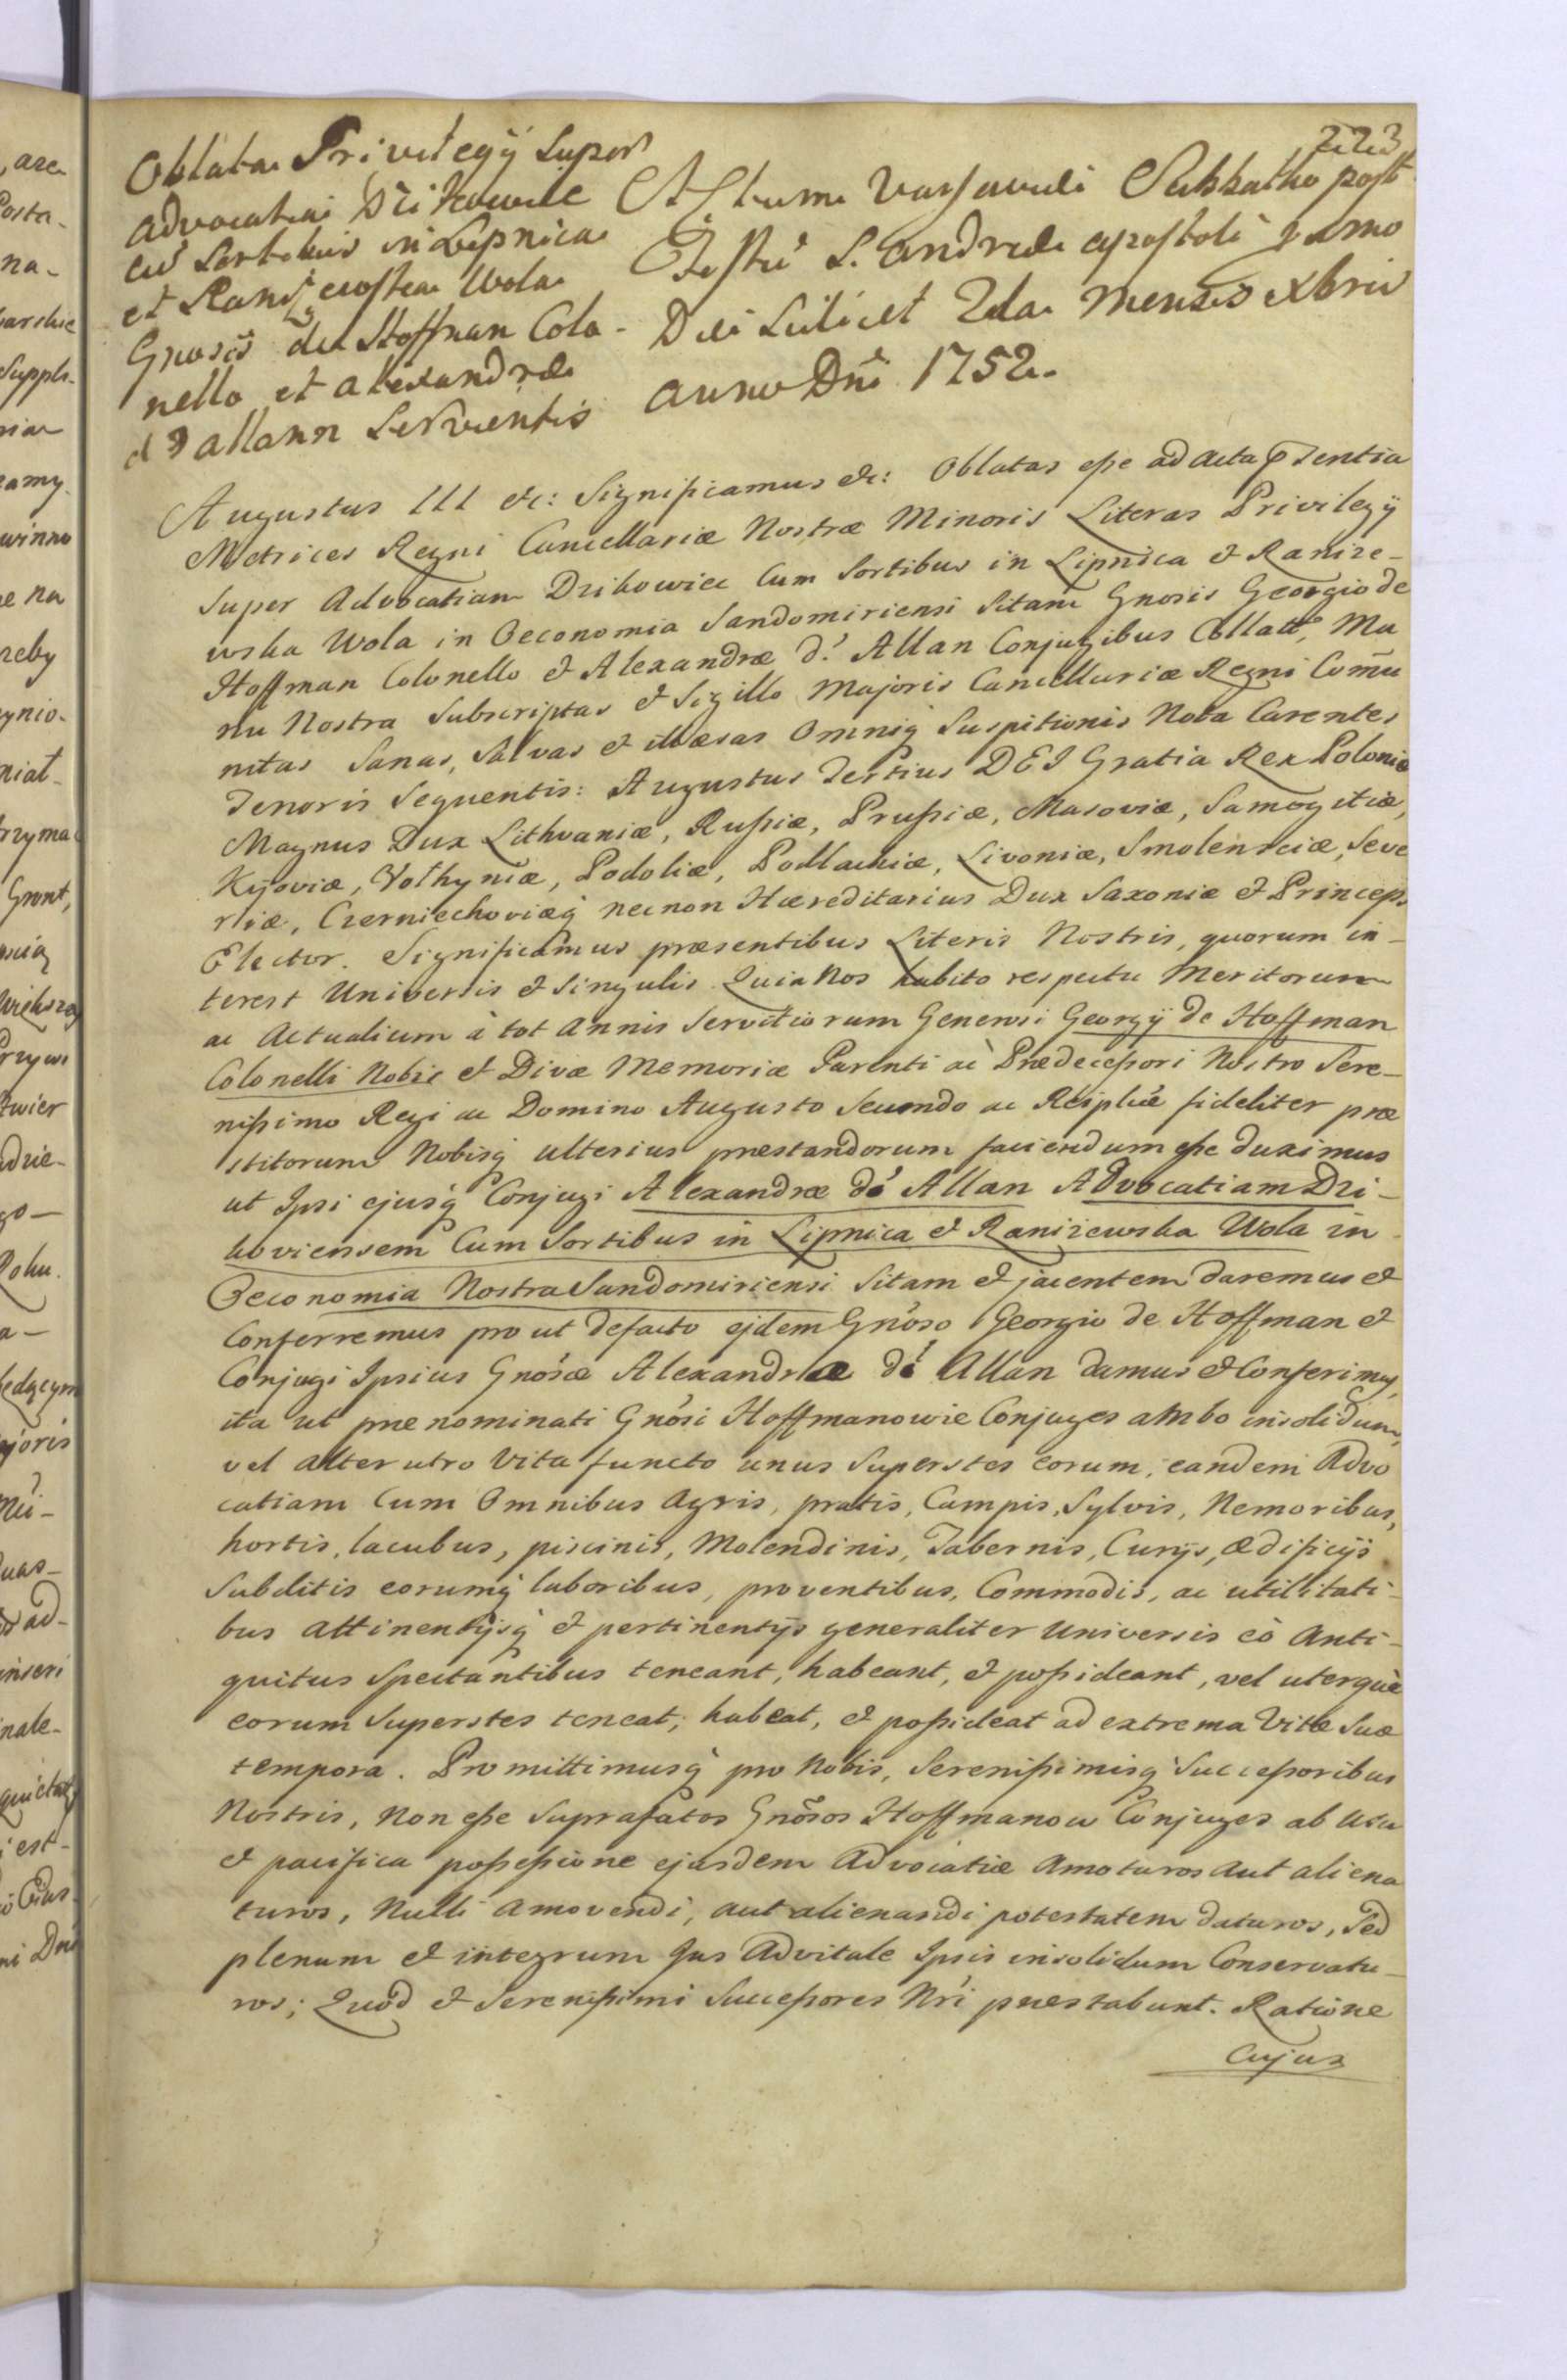 223
Oblata Privilegÿ super
advocatiai Dzikowiec
cu Sortibus in Lipnica
et Raniżewska Wola
Gnosis de Hoffman Colo-
nello et Alexandræ
d'Allann Servientis
Actum Varsaviæ Sabbatho post
Festu S. Andreæ apostoli primo
Die Scilicet 2da Mensis Xbris
anno Dni 1752.
Augustus III etc: Significamus etc: Oblatas eſse ad acta præsentia
Metrices Regni Cancellariæ Nostræ Minoris Literas Privilegÿ
super Advocatiam Dzikowiec Cum Sortibus in Lipnica & Raniże-
wska Wola in Oeconomia Sandomiriensi Sitam Gnosis Georgio de
Hoffman Colonello & Alexandræ d'Allan Conjugibus Collatt, Ma
nu Nostra Subscriptas & Sigillo Majoris Cancellariæ Regni Comu
nitas Sanas, Salvas et illæsas Omniq Suspitionis Nota Carentes
Tenoris Sequentis: Augustus Tertius DEI Gratia Rex Poloniæ
Magnus Dux Lithvaniæ, Ruſsiæ, Pruſsiæ, Masoviæ, Samogitiæ,
Kijoviæ, Volhyniæ, Podoliæ, Podlachiæ, Livoniæ, Smolensciæ, Seve
riæ, Czerniechoviæq necnon Hæreditarius Dux Saxoniæ & Princeps
Elector. Significamus præsentibus Literis Nostris, quorum in-
terest Universis & Singulis Quia Nos habito respectu Meritorum
ac Actualium à tot Annis Servitiorum Generosi Georgÿ de Hoffman
Colonelli Nobis & Divæ Memoriæ Parenti ac Prædeceſsori Nostro Sere-
niſsimo Regi ac Domino Augusto Secundo ac Reiplcæ fideliter præ
stitorum Nobisq ulterius præstandorum faciendum eſse duximus
ut Ipsi ejusq Conjugi Alexandræ dó Allan Advocatiam Dzi-
koviensem Cum Sortibus in Lipnica & Raniżewska Wola in
Oeconomia Nostra Sandomiriensi Sitam & jacentem daremus &
Conferremus prout defacto ejdem Gnóso Georgio de Hoffman &
Conjugi Ipsius Gnósæ Alexandræ dó Allan damus & Conferimus,
ita ut prænominati Gnósi Hoffmanowie Conjuges ambo insolidum,
vel alterutro Vita functo unus Superstes eorum, eandem Advo
catiam Cum Omnibus Agris, pratis, Campis, Sylvis, Nemoribus,
hortis, lacubus, piscinis, Molendinis, Tabernis, Curijs, Ædificÿs
Subditis eorumq laboribus, proventibus, Commodis, ac utilitati-
bus attinentÿsq & pertinentÿs generaliter Universis eò Anti-
quitus Spectantibus teneant, habeant, & poſsideant, vel uterque
eorum Superstes teneat, habeat, & poſsideat ad extrema Vitæ Suæ
tempora. Promittimusq pro Nobis, Sereniſsimisq Succeſsoribus
Nostris, Non eſse Suprafatos Gnósos Hoffmanow Conjuges ab Usu
& pacifica poſseſsione ejusdem Advocatiæ Amoturos Aut aliena
turos, Nulli Amovendi, aut alienandi potestatem daturos, Sed
plenum & integrum Jus Advitale Ipsis insolidum Conservatu-
ros; Quod & Sereniſsimi Succeſsores Nri præstabunt. Ratione
Cujus